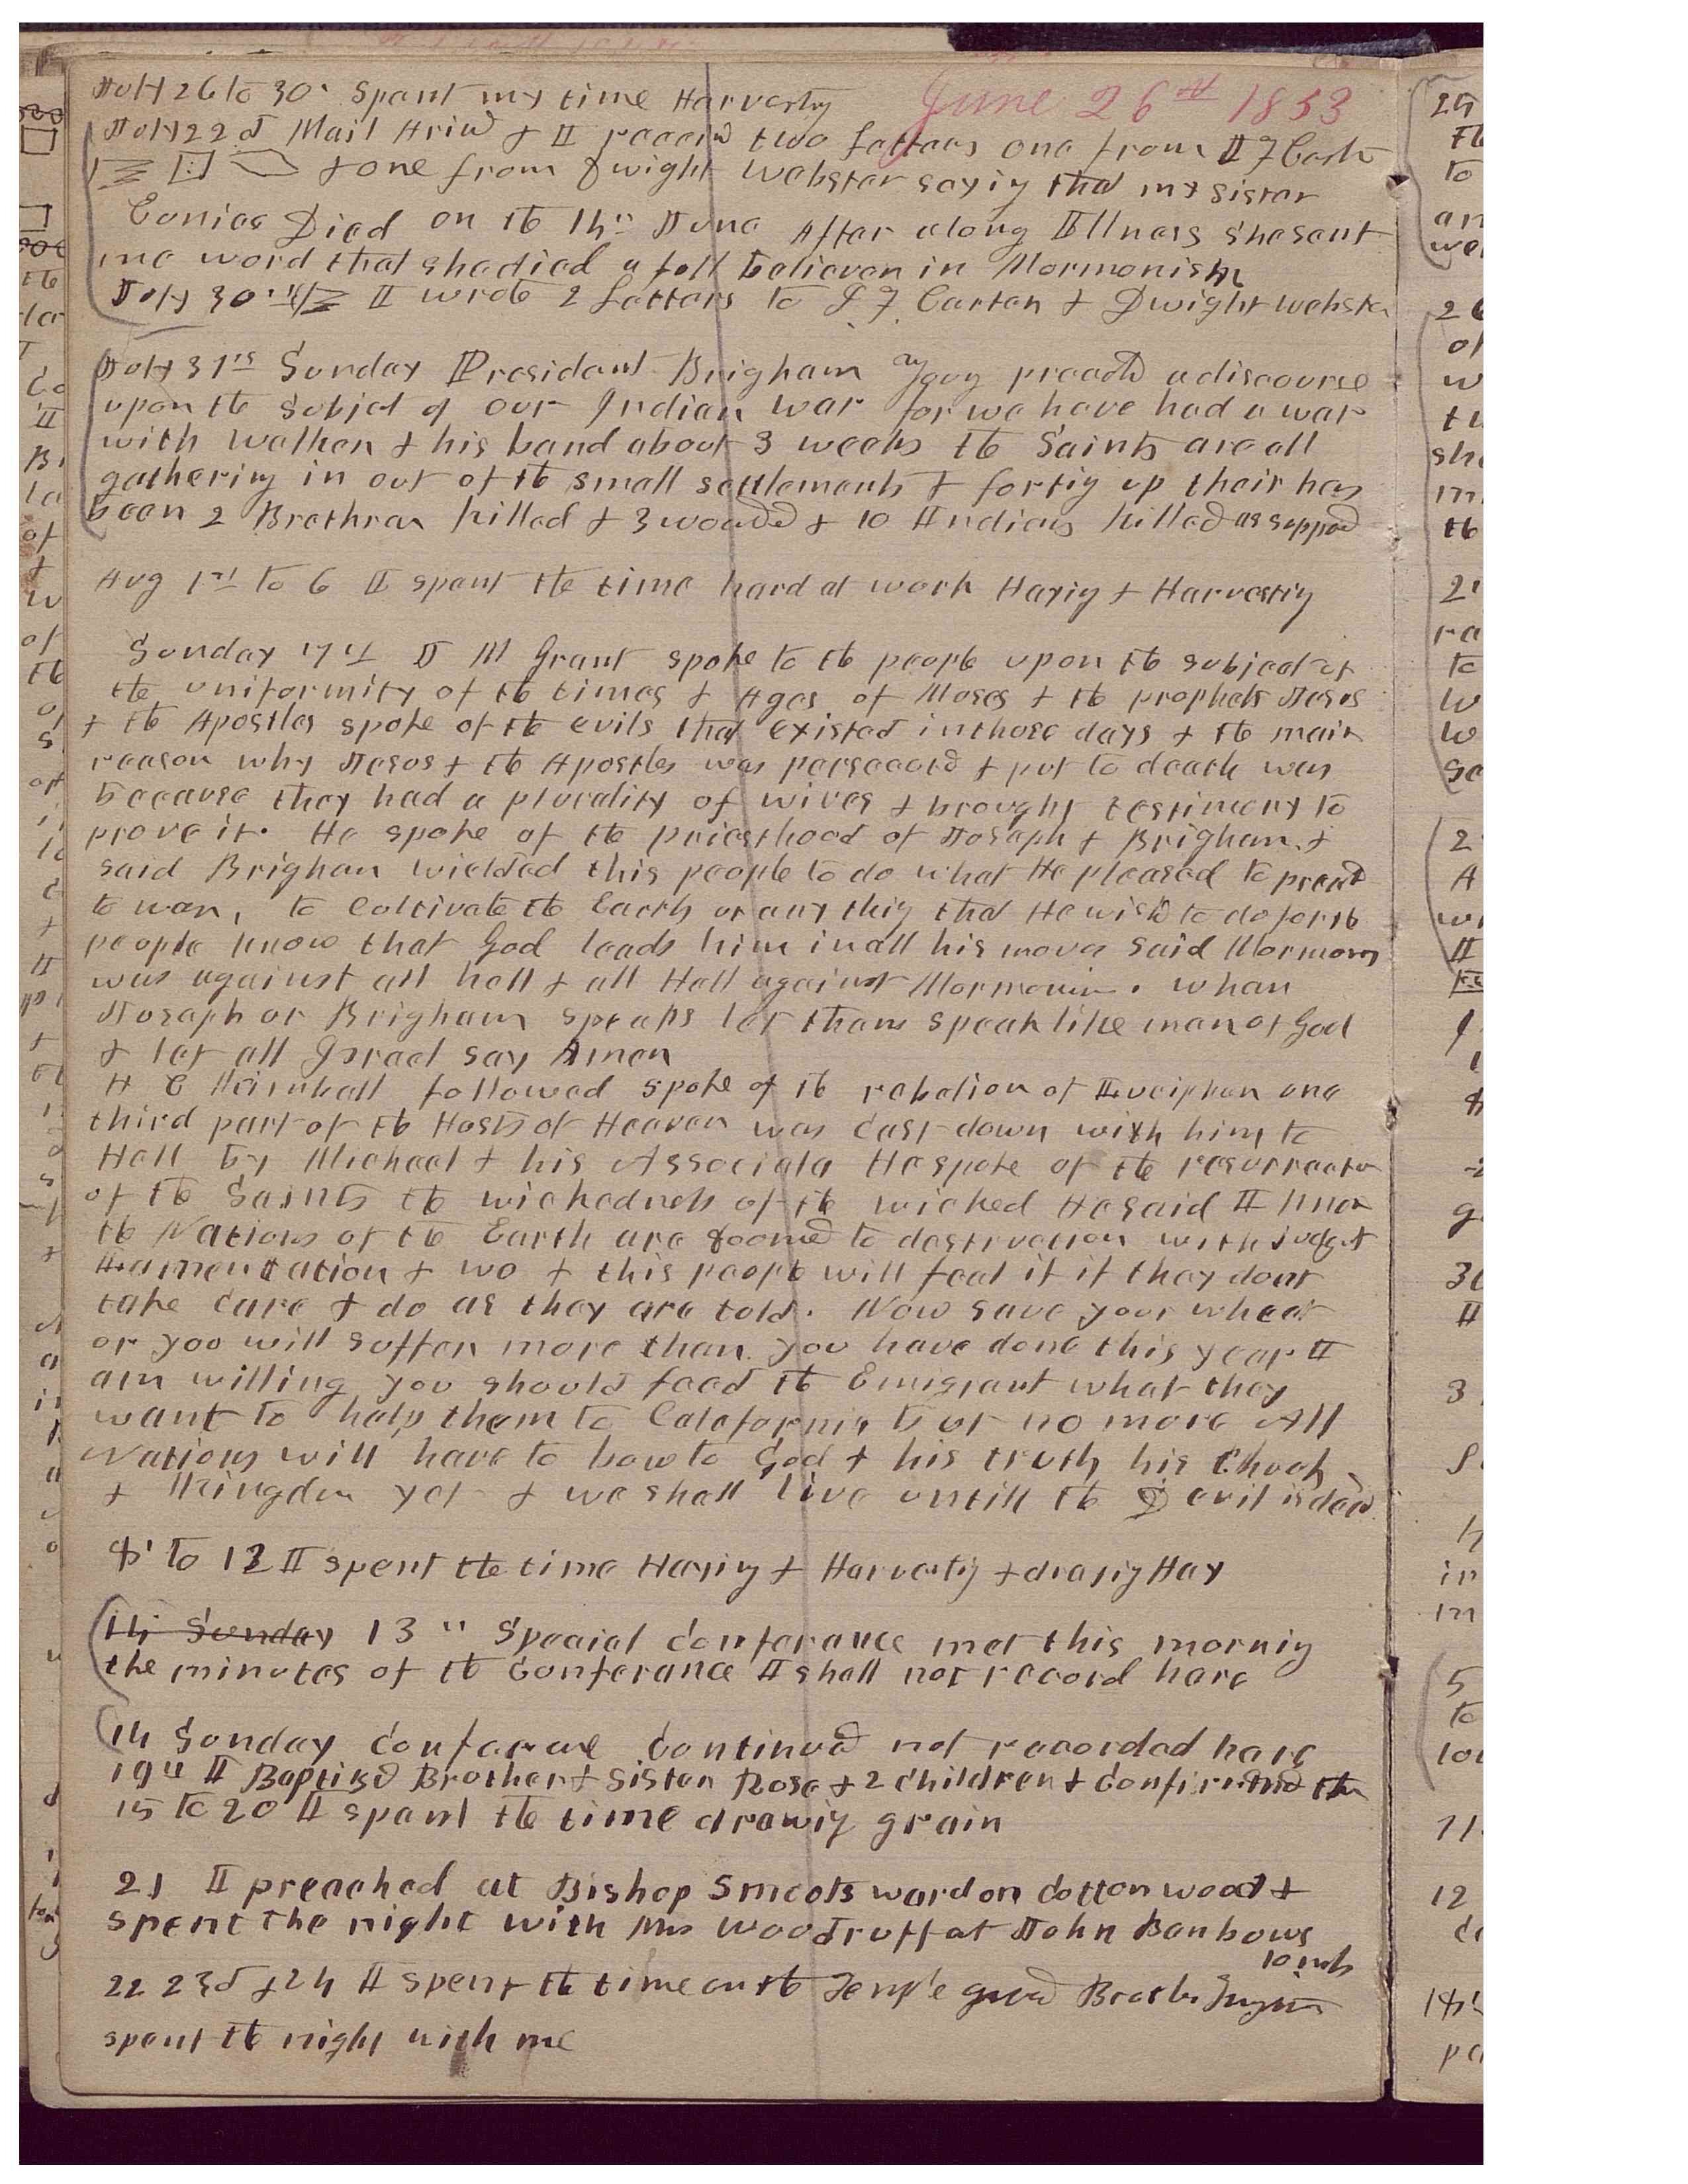 June 26th 1853
July 26 to 30. Spent my time Harvestig
July 22d Mail Arivd & I receivd two Letters one from I F Carter
& one from Dwight Webster sayig that my sister
Eunice Died on the 14th June After along Illness She sent
me word that she died a full believer in Mormonism
July 30th I wrote 2 Letters to I F. Carter & Dwight Webster
July 31st Sunday President Brigham Young preachd a discourse
upon the subjet of our Indian war for we have had a war
with Walker & his band about 3 weeks the Saints are all
gathering in out of the small settlements & fortig up their has
been 2 Brethren killed & 3 wounded & 10 Indians killed as suppod
Aug 1st to 6 I spent the time hard at work Hayig & Harvestig
Sunday 7th J M Grant spoke to the people upon the subject of
the uniformity of the times & Ages of Moses & the prophets Jesus
& the Apostles spoke of the evils that existed in those days & the main
reason why Jesus & the Apostles was persecuted & put to death was
because they had a plurality of wives & brought testimony to
prove it. He spoke of the priesthood of Joseph & Brigham &
said Brigham wielded this people to do what He pleased to preach
to war, to Cultivate the Earth or any thig that He wishd to do for the
people know that God leads him in all his moves said Mormonism
was against all hell & all Hell against Mormonism. when
Joseph or Brigham speaks let them speak like man of God
& let all Israel say Amen
H C Kimball followed spoke of the rebelion of Lucipher one
third part of the Hosts of Heaven was Cast down with him to
Hell by Micheal & his Associate He spoke of the resurrectn
of the Saints the wickedness of the wicked He said I know
the Nations of the Earth are doomed to destruction with judgt
Lamentation & wo & this people will feel it if they dont
take Care & do as they are told. Now save your wheat
or you will suffer more than you have done this year I
am willing you should feed the Emigrant what they
want to help them to California but no more All
Nations will have to bow to God & his truth his Chuch
& Kingdom yet & we shall live untill the Devil is dead.
8' to 12 I spent the time Hayig & Harvestig & drawig Hay
14 Sunday 13" Special Conferance met this mornig
the minutes of the Conferance I shall not record here
14 Sunday Conferance Continued not recorded here
19th I Baptisd Brother & Sister Rose & 2 children & Confirmed them
15 to 20 I spent the time drawig grain
21 I preached at Bishop Smoots ward on Cottonwood &
spent the night with Mrs Woodruff at John Benbows
22 23d & 24 I spent the time on the Temple Brother
spent the night with me